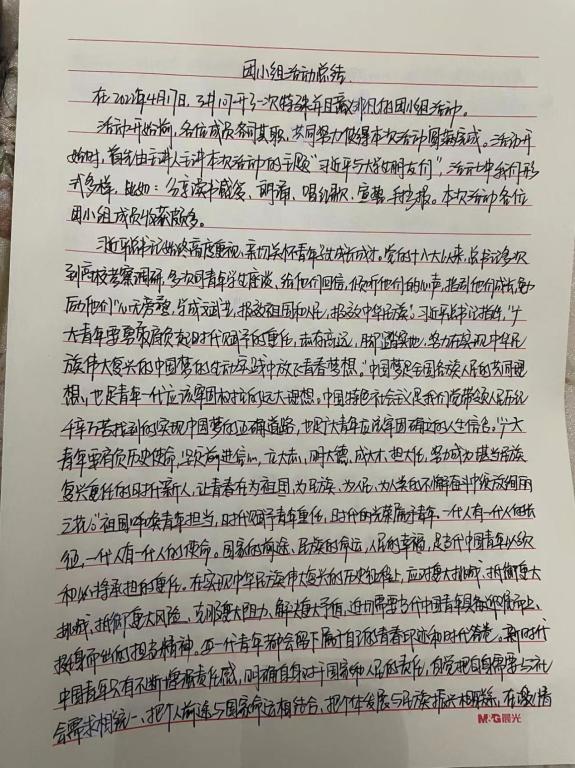 团小组活动总结
在2022年4月17日,我们开了一次特殊并且意义非凡的团小组活动。
活动开始前,各位成员各司其职,共同努力使得本次活动圆满完成。活动开
始时,首先由主讲人主讲本次活动的主题“习近平与大学生朋友们”,活动中我们形
式多样,比如:分享读书感受、朗诵、唱红歌、宣誓、手抄报。本次活动各位
团小组成员收获颇多。
习近平总书记始终高度重视、亲切关怀青年学生成长成才。党的十八大以来,总书记多次
到高校考察调研,多次同青年学生座谈、给他们回信,倾听他们的心声,指引他们成长,勉
励他们“心无旁骛,学成文武,报效祖国和人民,报效中华民族”。习近平总书记指出,“广
大青年要肩负起时代赋予的重任,志存高远,脚踏实地,努力在实现中华民
族伟大复兴的中国梦的生动实践中放飞青春梦想。”中国梦是全国各族人民的共同理
想,也是青年一代应该牢固树立的远大理想。中国特色社会主义是我们党带领人民历经
千辛万苦找到的实现中国梦的正确道路,也是广大青年应该牢固确立的人生信念。“广大
青年要肩负历史使命,坚定前进信心,立大志、明大德、成大才、担大任,努力成为堪当民族
复兴重任的时代新人,让青春在为祖国、为民族、为人民、为人类的不懈奋斗中绽放绚丽
之花。”祖国呼唤青年担当,时代赋予青年重任,时代的光荣属于青年。一代人有一代人的长
征,一代人有一代人的使命。国家的前途、民族的命运、人民的幸福,是当代中国青年必须
和必将承担的重任。在实现中华民族伟大复兴的历史征程上,应对重大挑战、抵御重大
挑战、抵御重大风险、克服重大阻力、解决重大矛盾,迫切需要当代中国青年具备迎难而上、
挺身而出的担当精神。每一代青年都会留下属于自己的青春印迹和时代答卷。新时代
中国青年只有不断增强责任感,明确自身对于国家和人民的责任,自觉把自身需要与社
会需求相统一、把个人前途与国家命运相结合、把个体发展与民族振兴相联系,在激情
M&G晨光